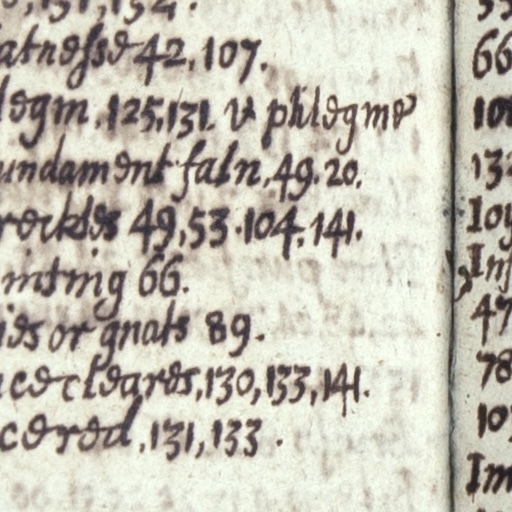 atnesse 42, 107.
legm, 125, 131. v phlegme
undament faln, 49. 20.
reckles 49, 53. 104, 141.
inting 66.
ies or gnats 89.
ace cleares, 130, 133, 141.
ce red, 131, 133.
66
132
Ioy
47
78
Im